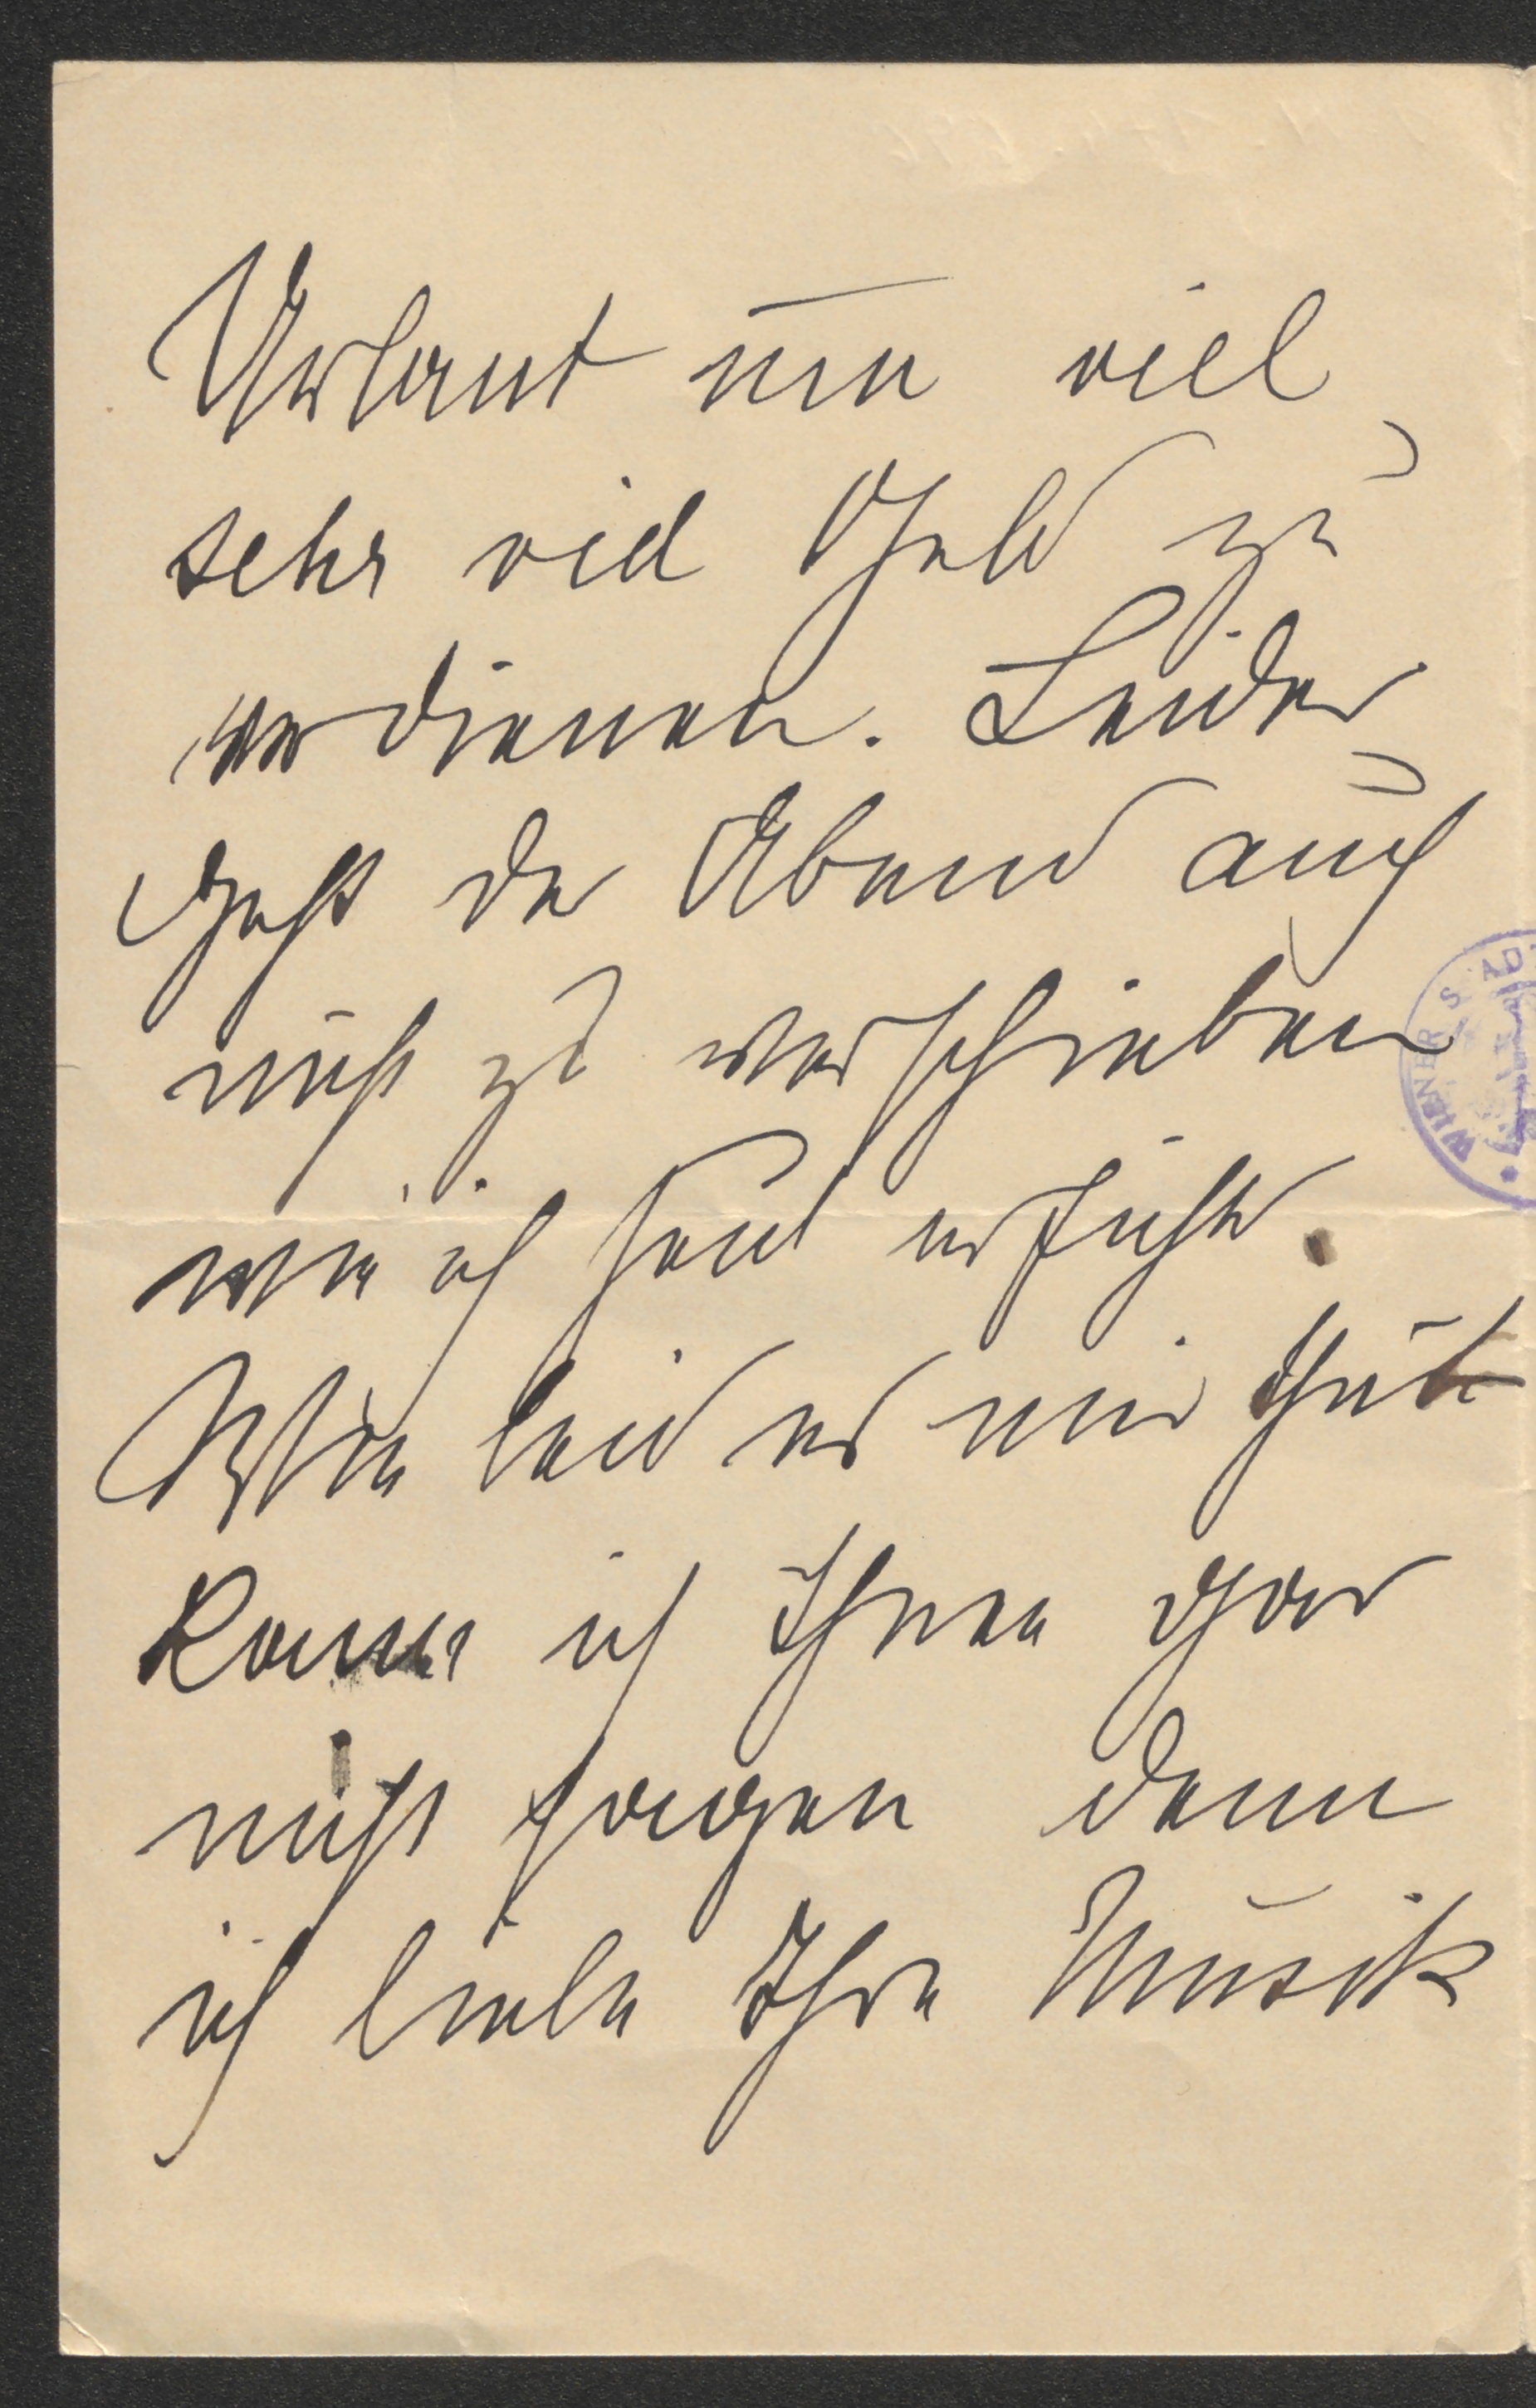 Urlaub um viel
sehr viel Geld zu
verdienen. Leider
geht der Abend auch
nicht zu verschieben
wie ich heut erfuhr.
Wie leid es mir thut
kann ich Ihnen gar
nicht sagen denn
ich liebe Ihre Musik
WIENER STADT